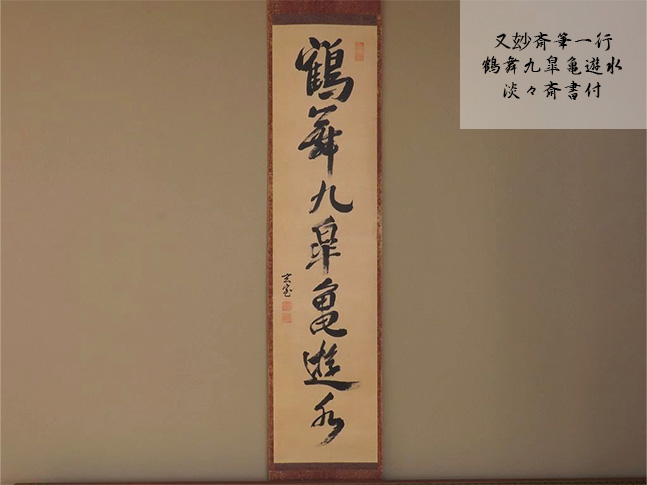 又玅斎筆一行
鶴舞九皐亀遊水
淡々斎書付
鶴舞九皐亀遊水
玄室